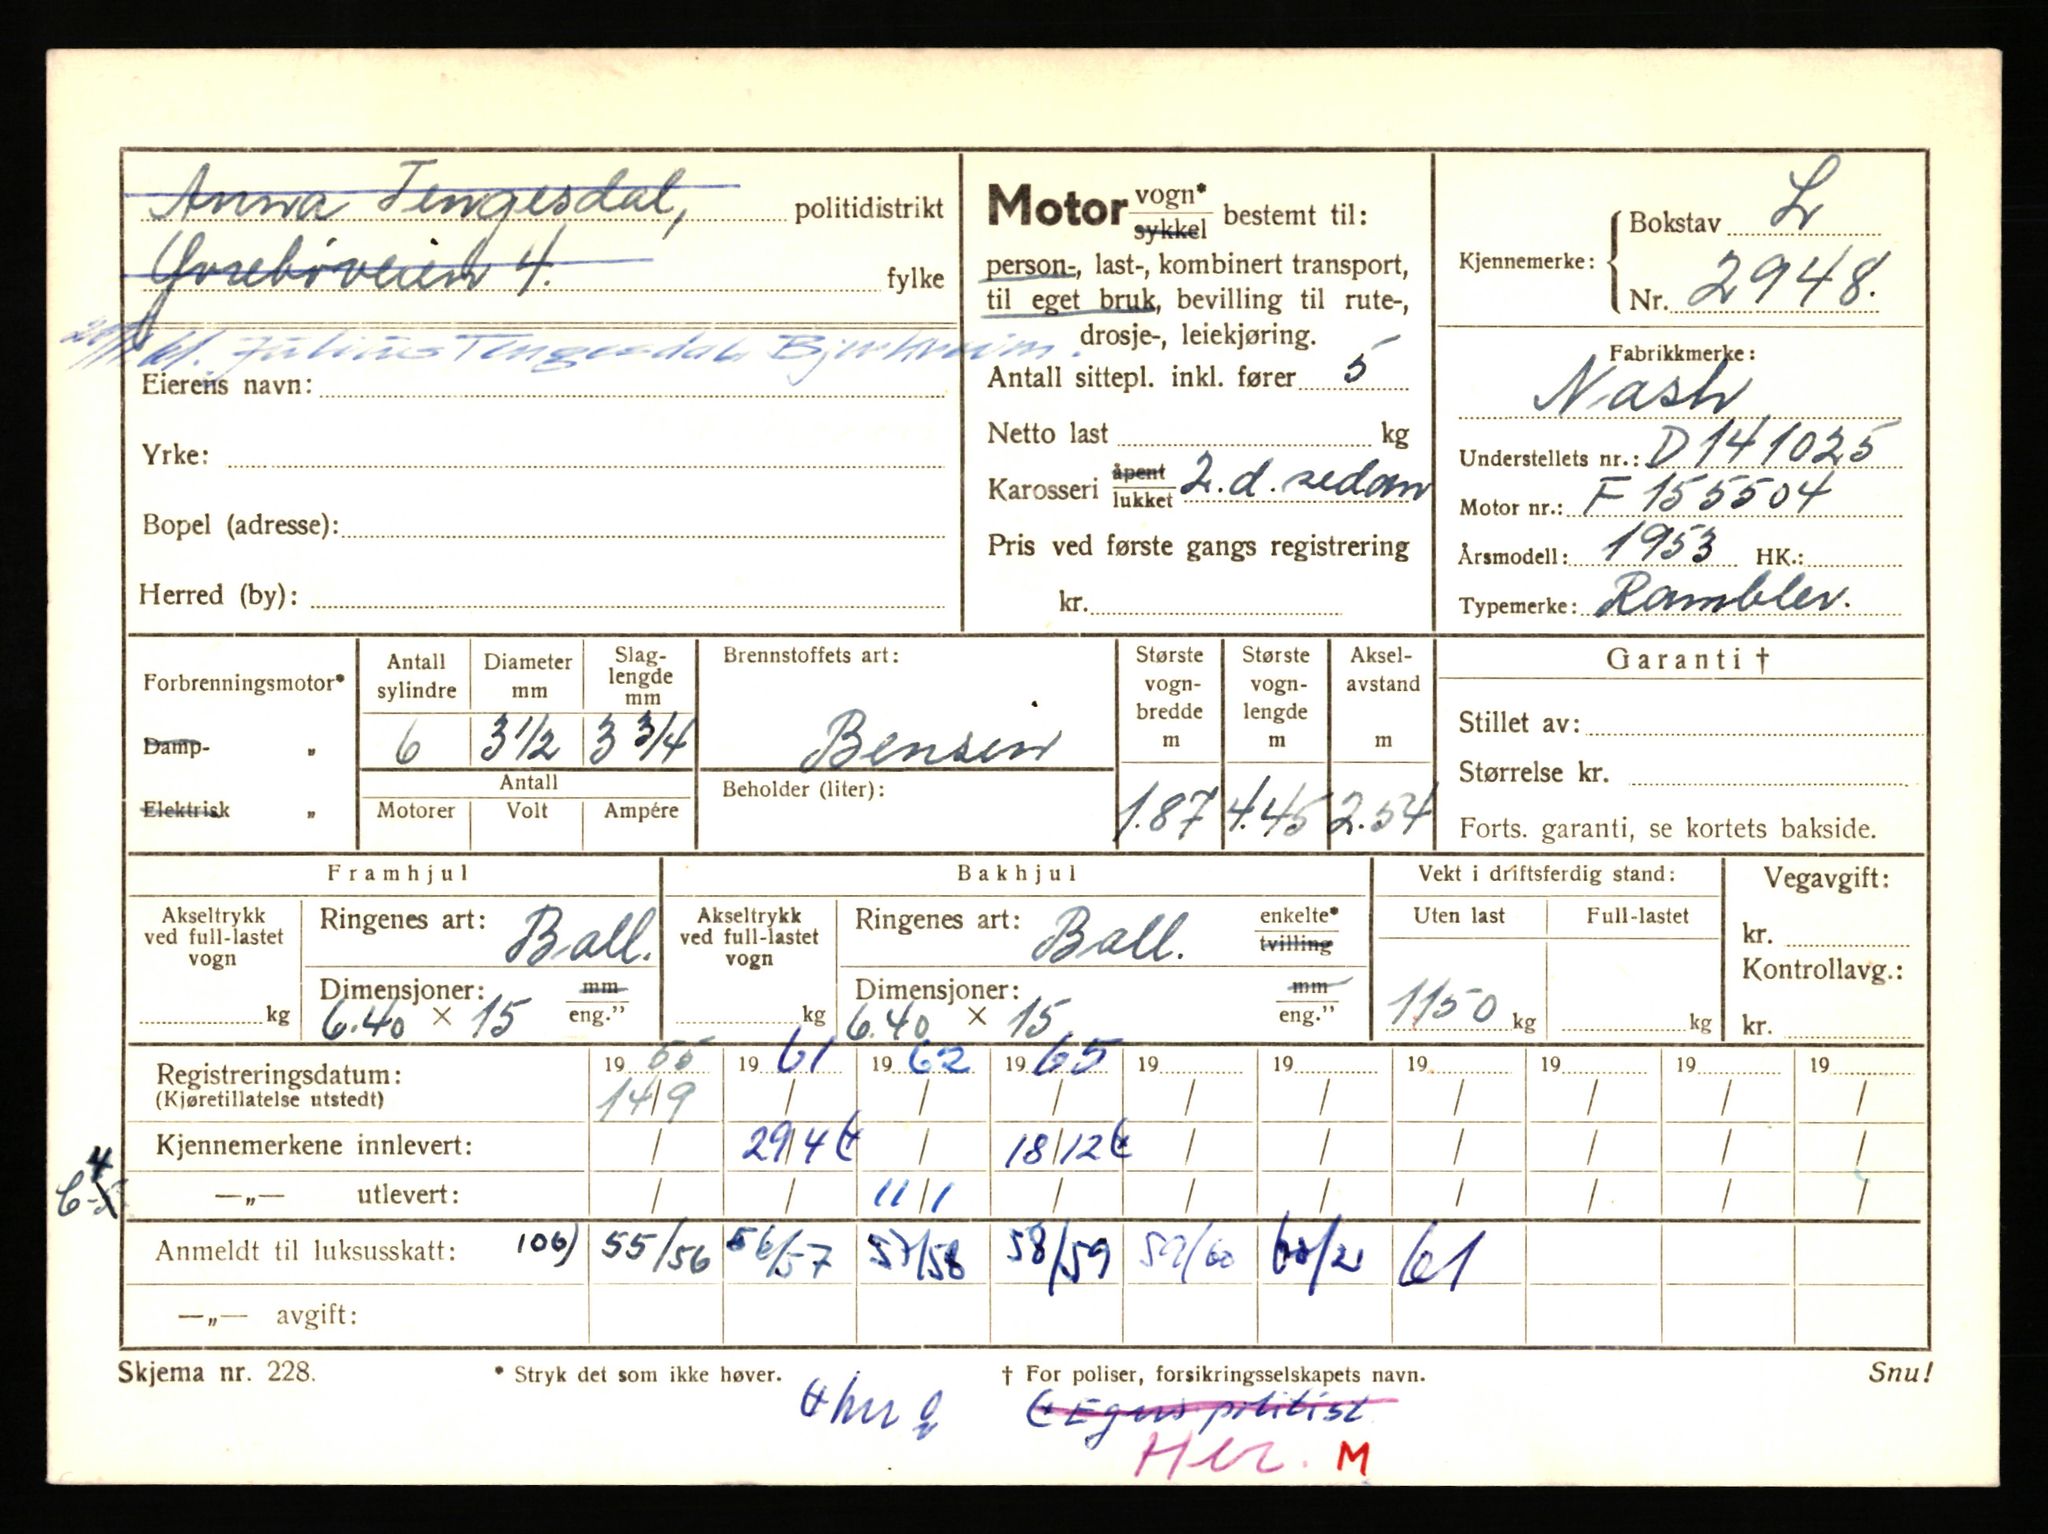 Anna Tengesdal, politidistrikt
4. fylke
Julius Tengesdal, Bjerkreim.
Eierens navn:
Yrke:
Bopel (adresse):
Herred (by):
Motor vogn* sykkel bestemt til:
person-, last-, kombinert transport,
til eget bruk, bevilling til rute-,
drosje-, leiekjøring.
Antall sittepl. inkl. fører 5
Netto last kg
Karosseri åpent lukket 2.d. sedan
Pris ved første gangs registrering
kr.
Kjennemerke: Bokstav L
Nr. 2948.
Fabrikkmerke:
Nash
Understellets nr.: D141025
Motor nr.: F 155504
Årsmodell: 1953 HK.:
Typemerke: Rambler.
Forbrenningsmotor*
Damp- „
Elektrisk „
Antall sylindre
6
Diameter mm
3 1/2
Slag-lengde mm
3 3/4
Antall
Motorer Volt Ampére
Brennstoffets art:
Bensin
Beholder (liter):
Største vogn-bredde m
1.87
Største vogn-lengde m
4.45
Aksel-avstand m
2.54
Garanti †
Stillet av:
Størrelse kr.
Forts. garanti, se kortets bakside.
Framhjul
Akseltrykk ved full-lastet vogn
kg
Ringenes art: Ball.
Dimensjoner: mm eng."
6.40 × 15
Bakhjul
Akseltrykk ved full-lastet vogn
kg
Ringenes art: Ball. enkelte* tvilling
Dimensjoner: mm eng."
6.40 × 15
Vekt i driftsferdig stand:
Uten last Full-lastet
1150 kg kg
Vegavgift:
kr.
Kontrollavg.:
kr.
Registreringsdatum: 19 55 19 61 19 62 19 65 19 19 19 19 19 19
(Kjøretillatelse utstedt) 14/9 / / / / / / / / /
Kjennemerkene innlevert: / 29/4 / 18/12 / / / / / /
—„— utlevert: / / 11/1 / / / / / / /
Anmeldt til luksusskatt: 106) 55/56 56/57 57/58 58/59 59/60 61
—„— avgift:
Skjema nr. 228. * Stryk det som ikke høver. † For poliser, forsikringsselskapets navn. Snu!
M